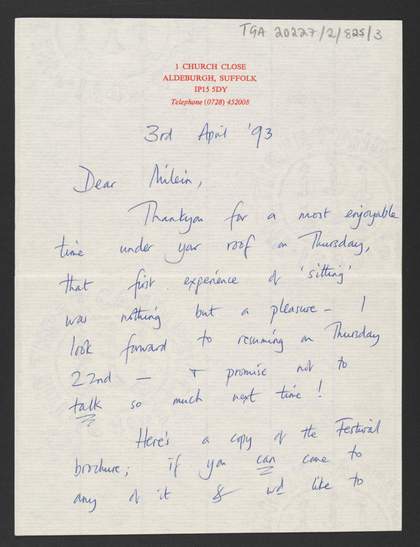 TGA 20227/2/825/3
1 CHURCH CLOSE
ALDEBURGH, SUFFOLK
IP15 5DY
Telephone (0728) 452008
3rd April '93
Dear Milein,
Thankyou for a most enjoyable
time under your roof on Thursday,
that first experience of 'sitting'
was nothing but a pleasure - I
look forward to resuming on Thursday
22nd — & promise not to
talk so much next time!
Here's a copy of the Festival
brochure; if you can come to
any of it & wd like to